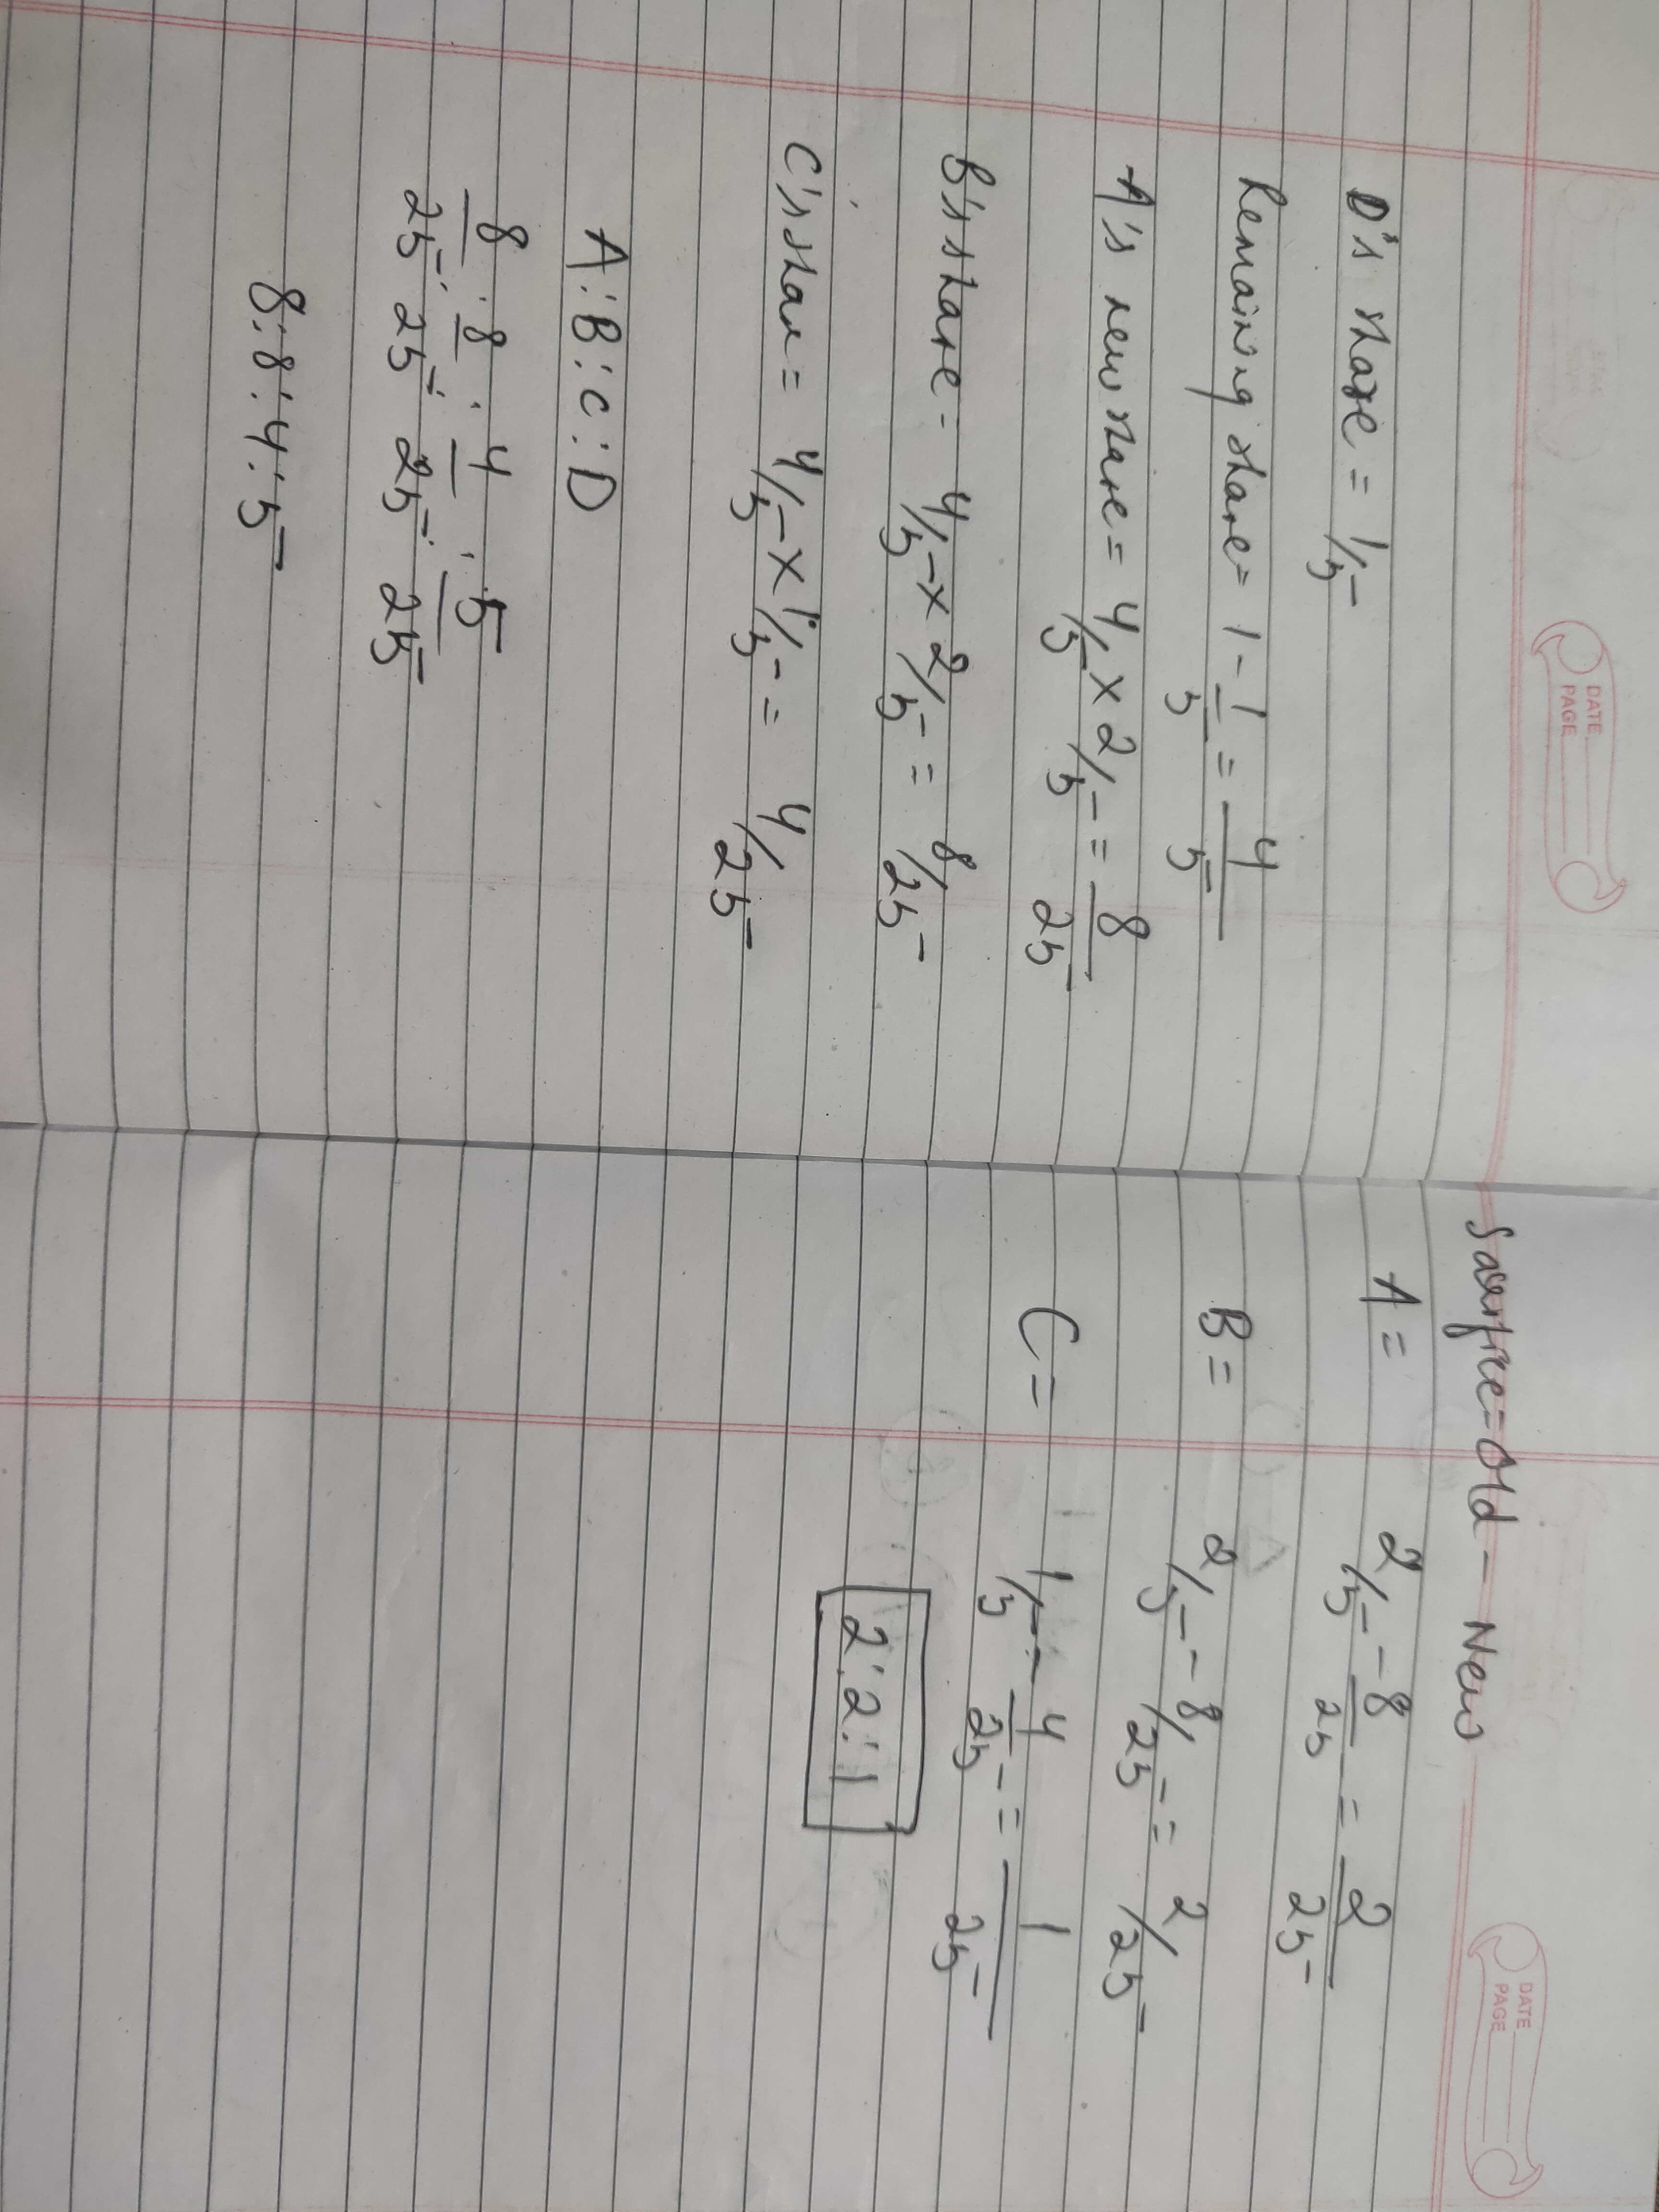 DATE
PAGE
D's share = 1/5
Remaining share = 1 - 1/5 = 4/5
A's new share = 4/5 x 2/5 = 8/25
B's share = 4/5 x 2/5 = 8/25
C's share = 4/5 x 1/5 = 4/25
A : B : C : D
8/25 : 8/25 : 4/25 : 5/25
8 : 8 : 4 : 5
DATE
PAGE
= Old - New
A = 2/5 - 8/25 = 2/25
B = 2/5 - 8/25 = 2/25
C = 1/5 - 4/25 = 1/25
2 : 2 : 1